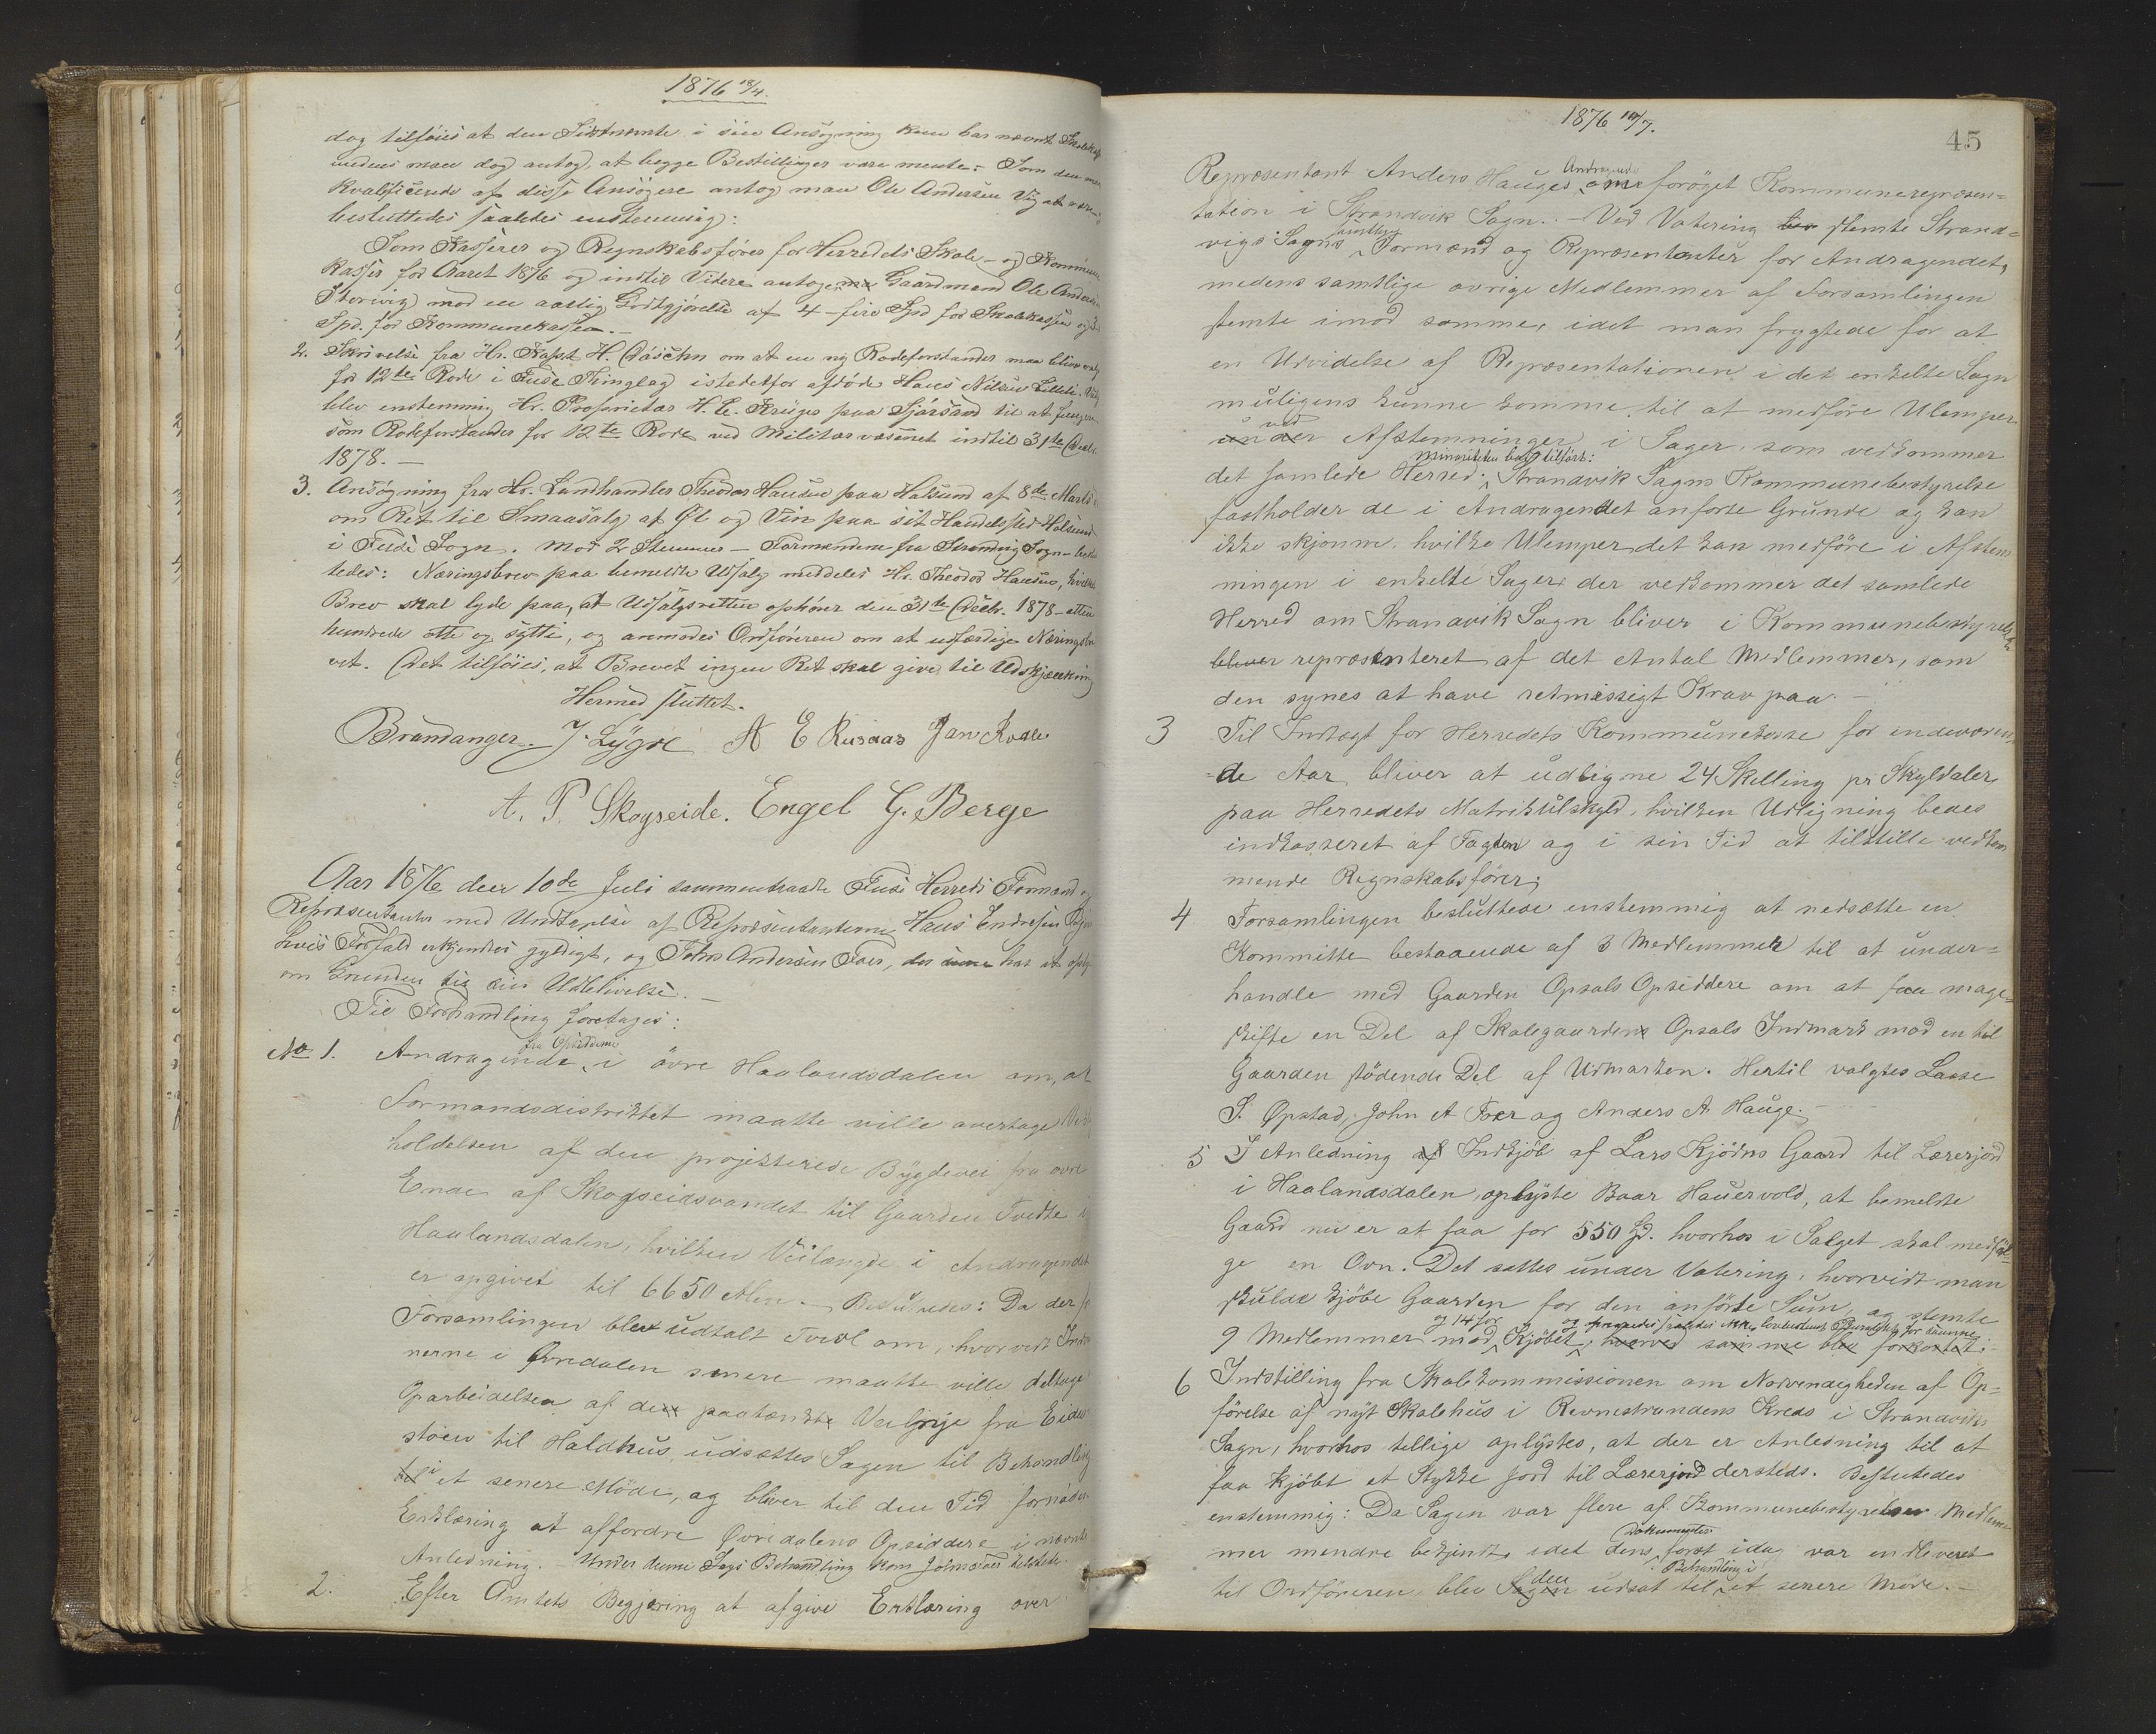 1876 18/4.
dog tilföies at den Sidstnævnte i sin Ansögning kun har nævnt Skolek
medens man dog antog, at begge Bestillinger vare mente. Som den mes
kvalificerede af disse Ansögere antog man Ole Andersen Vig at være
besluttedes saaledes enstemmig:
Som Kasserer og Regnskabsförer for Herredets Skole- og Kommune
kasser for Aaret 1876 og indtil Videre antoges Gaardmand Ole Anders
Storevig mod en aarlig Godtgjörelse af 4 - fire Spd for Skolekassen og 3
Spd. for Kommunekassen. -
2. Skrivelse fra Hr. Kapt. H. Daschn om at en ny Rodeforstander maa blive valg
for 12te Rode i Fuse Thinglag istedetfor afdöde Hans Nilsen Lilleli. Valg
blev enstemmig Hr. Proprietær H. C. Krüger paa Sjörsand til at fungere
som Rodeforstander for 12te Rode ved Militærvæsenet indtil 31te Decbr.
1878. -
3. Ansögning fra Hr. Landhandler Theodor Hansen paa Halsund af 8de Marts
om Ret til Smaasalg af Öl og Vin paa sit Handelssted Holsund
i Fuse Sogn. Mod 2 Stemmer - Formændene fra Strandvig Sogn - beslut
tedes: Næringsbrev paa bemeldte Udsalg meddeles Hr. Theodor Hansen, hvilket
Brev skal lyde paa, at Udsalgsretten ophörer den 31te Decbr. 1878 - atten
hundrede otte og sytti, og anmodes Ordföreren om at udfærdige Næringsbre
vet. Det tilföies, at Brevet ingen Ret skal give til Udskjænkning
Hermed sluttet.
Brandanger. J. Lygre A E Riisaas Jan Kvale
A. P. Skogseide. Engel G. Berge
Aar 1876 den 10de Juli sammentraadte Fuse Herreds Formænd og
Repræsentanter med Undtagelse af Repræsentanterne Hans Endresen
hvis Forfald erkjendtes gyldigt, og Johs Andersen Foer, der har at oply
om Grunden til sin Udeblivelse. -
Til Forhandling foretages:
No 1. Andragende fra Opsidderne i övre Haalandsdalen om, at
Formandsdistriktet maatte ville overtage Ved
holdelsen af den projekterede Bygdevei fra övre
Ende af Skogseidsvandet til Gaarden Tvedte i
Haalandsdalen, hvilken Veilængde i Andragendet
er opgivet til 6650 Alen. - Besluttedes: Da der i
Forsamlingen blev udtalt Tvivl om, hvorvidt Ind
nerne i Övredalen senere maatte ville deltage
Oparbeidelsen af den paatænkte Veilinje fra Eides
stöen til Haldhus, udsættes Sagen til Behandling
i et senere Möde, og bliver til den Tid fornöden
Erklæring at affordre Övredalens Opsiddere i nævnte
Anledning. - Under denne Sags Behandling kom Johns Foer tilstede.
2. Efter Amtets Begjæring at afgive Erklæring over
1876 10/7.
45
Repræsentant Anders Hauges Andragende om foröget Kommunerepræsen=
tation i Strandvik Sogn. - Ved Votering stemte Strand=
vigs Sogns samtlige Formænd og Repræsentanter for Andragendet,
medens samtlige övrige Medlemmer af Forsamlingen
stemte imod samme, idet man frygtede for at
en Udvidelse af Repræsentationen i det enkelte Sogn
muligens kunne komme til at medföre Ulemper
ved Afstemninger i Sager, som vedkommer
det samlede Herred. Minoriteten bad tilfört: Strandvik Sogns Kommunebestyrelse
fastholder de i Andragendet anförte Grunde og kan
ikke skjönne, hvilke Ulemper det kan medföre i Afstem
ningen i enkelte Sager der vedkommer det samlede
Herred om Strandvik Sogn bliver i Kommunebestyrelsen
bliver repræsenteret af det Antal Medlemmer, som
den synes at have retmæssigt Krav paa. -
3 Til Indtægt for Herredets Kommunekasse for indeværen
=de Aar bliver at udligne 24 Skilling pr Skylddaler
paa Herredets Matrikulskyld, hvilken Udligning bedes
indkasseret af Fogden og i sin Tid at tilstille vedkom
mende Regnskabsförer,
4 Forsamlingen besluttede enstemmig at nedsætte en
Kommitte bestaaende af 3 Medlemmer til at under=
handle med Gaarden Opsals Opsiddere om at faa mage=
skifte en Del af Skolegaarden Opsals Indmark mod en til
Gaarden stödende Del af Udmarken. Hertil valgtes Lasse
S. Öpstad, John A Foer og Anders A Hauge. -
5 I Anledning af Indkjöb af Lars Kjödns Gaard til Lærerjord
i Haalandsdalen, oplyste Baar Hauervold, at bemeldte
Gaard nu er at faa for 550 Spd. hvorhos i Salget skal medföl=
ge en Ovn. Det sattes under Votering, hvorvidt man
skulde kjöbe Gaarden for den anförte Sum, og stemte
9 Medlemmer mod og 14 for Kjöbet, hvorved samme blev forkastet. -
6 Indstilling fra Skolekommissionen om Nödvendigheden af Op=
förelse af nyt Skolehus i Revnestrandens Kreds i Strandviks
Sogn, hvorhos tillige oplystes, at der er Anledning til at
faa kjöbt et Stykke Jord til Lærerjord dersteds. Besluttedes
enstemmig: Da Sagen var flere af Kommunebestyrelsens Medlem=
mer mindre bekjendt, idet dens Dokumenter först idag var indleveret
til Ordföreren, blev den udsat til Behandling i et senere Möde. -